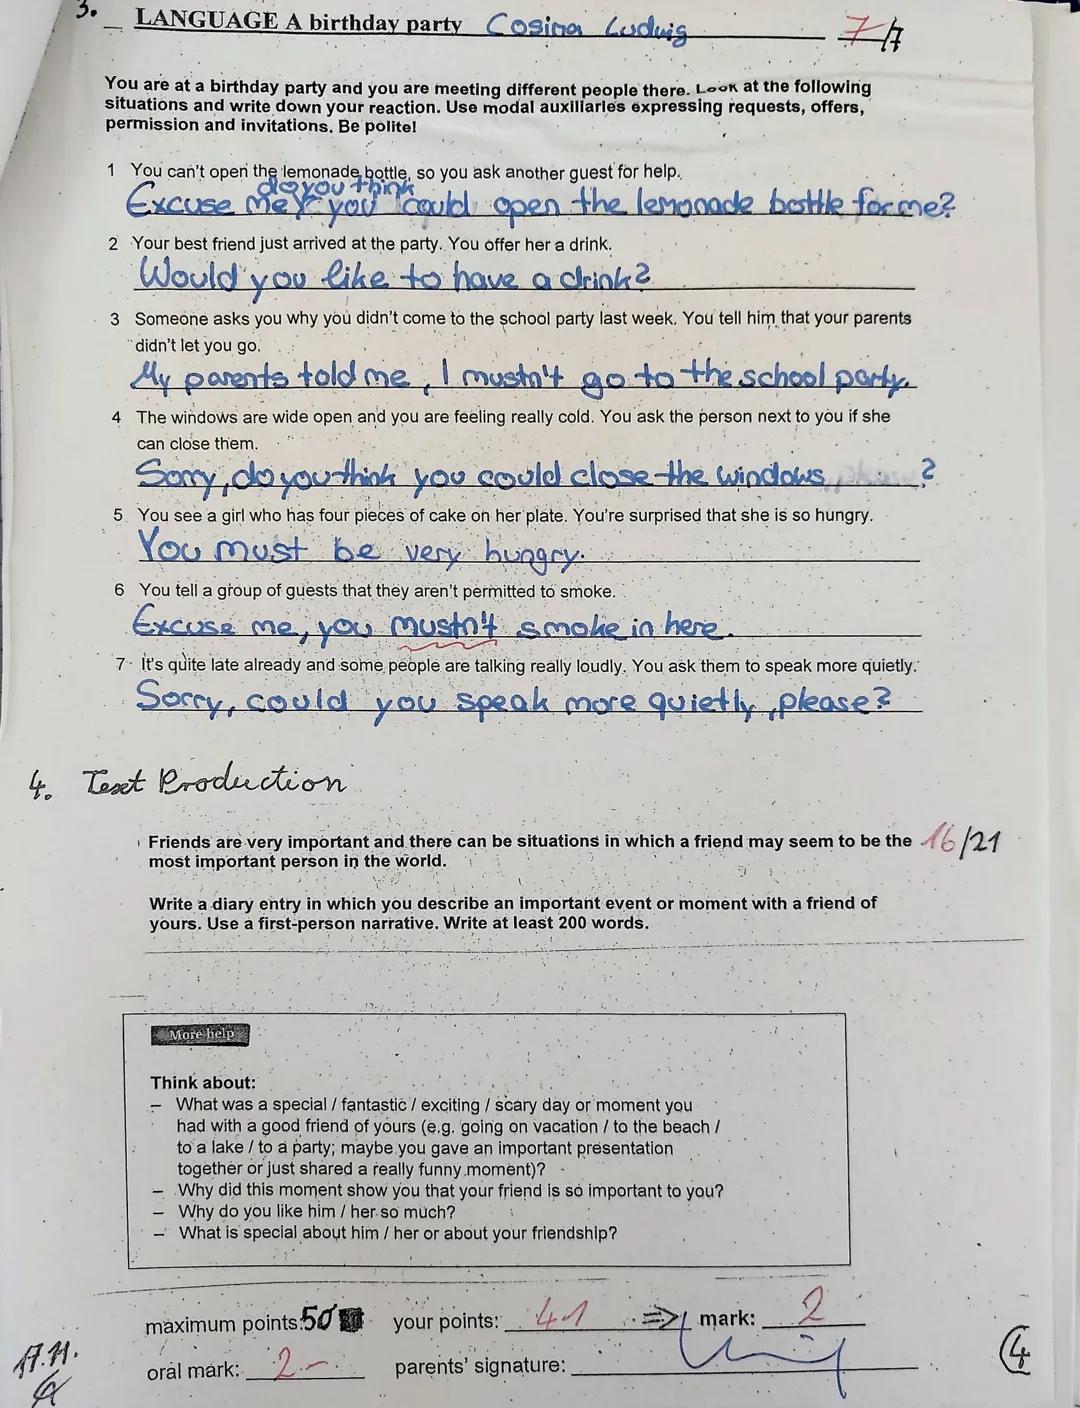 3. LANGUAGE A birthday party Cosima Ludwig 7/7
You are at a birthday party and you are meeting different people there. Look at the following
situations and write down your reaction. Use modal auxiliaries expressing requests, offers,
permission and invitations. Be polite!
1 You can't open the lemonade bottle, so you ask another guest for help.
do you think
Excuse me, you could open the lemonade bottle for me?
2 Your best friend just arrived at the party. You offer her a drink.
Would you like to have a drink?
3 Someone asks you why you didn't come to the school party last week. You tell him that your parents
didn't let you go.
My parents told me, I mustn't go to the school party.
4 The windows are wide open and you are feeling really cold. You ask the person next to you if she
can close them.
Sorry, do you think you could close the windows ?
5 You see a girl who has four pieces of cake on her plate. You're surprised that she is so hungry.
You must be very hungry.
6 You tell a group of guests that they aren't permitted to smoke.
Excuse me, you mustn't smoke in here.
7 It's quite late already and some people are talking really loudly. You ask them to speak more quietly.
Sorry, could you speak more quietly, please?
4. Text Production
Friends are very important and there can be situations in which a friend may seem to be the 16/21
most important person in the world.
Write a diary entry in which you describe an important event or moment with a friend of
yours. Use a first-person narrative. Write at least 200 words.
More help
Think about:
– What was a special / fantastic / exciting / scary day or moment you
had with a good friend of yours (e.g. going on vacation / to the beach /
to a lake / to a party; maybe you gave an important presentation
together or just shared a really funny moment)?
– Why did this moment show you that your friend is so important to you?
– Why do you like him / her so much?
– What is special about him / her or about your friendship?
maximum points: 50 your points: 41 => mark: 2
17.11.
oral mark: 2- parents' signature:
4